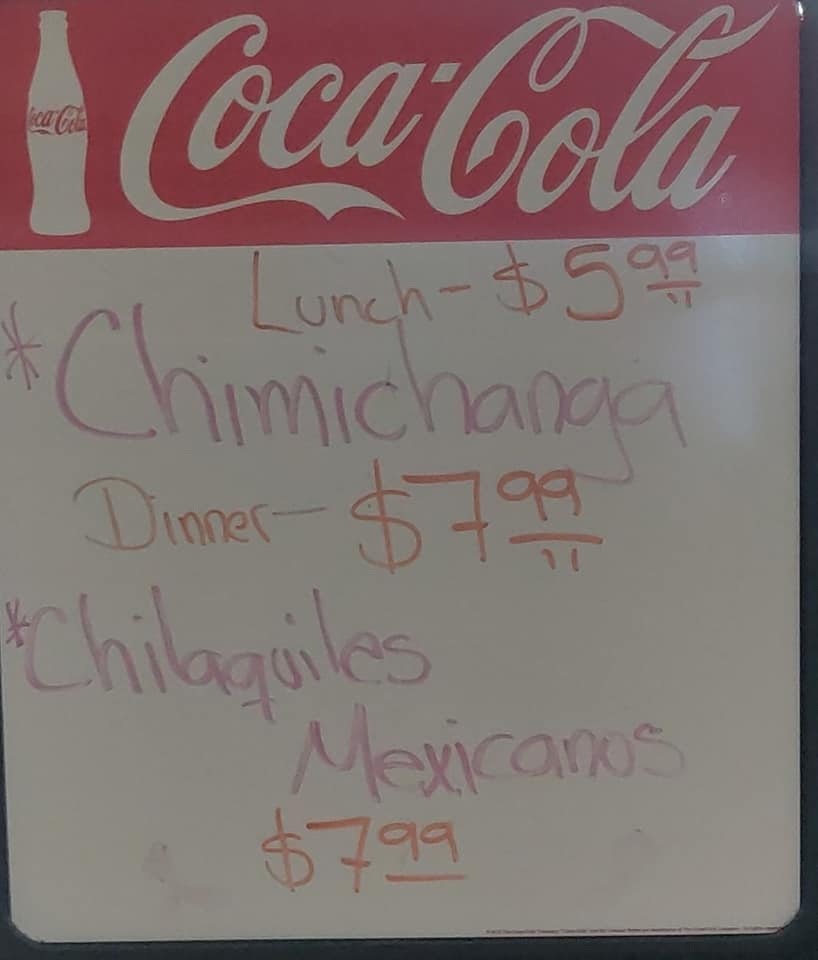 Coca-Cola
Coca-Cola
Lunch - $5.99
*Chimichanga
Dinner - $7.99
*Chilaquiles
Mexicanos
$7.99